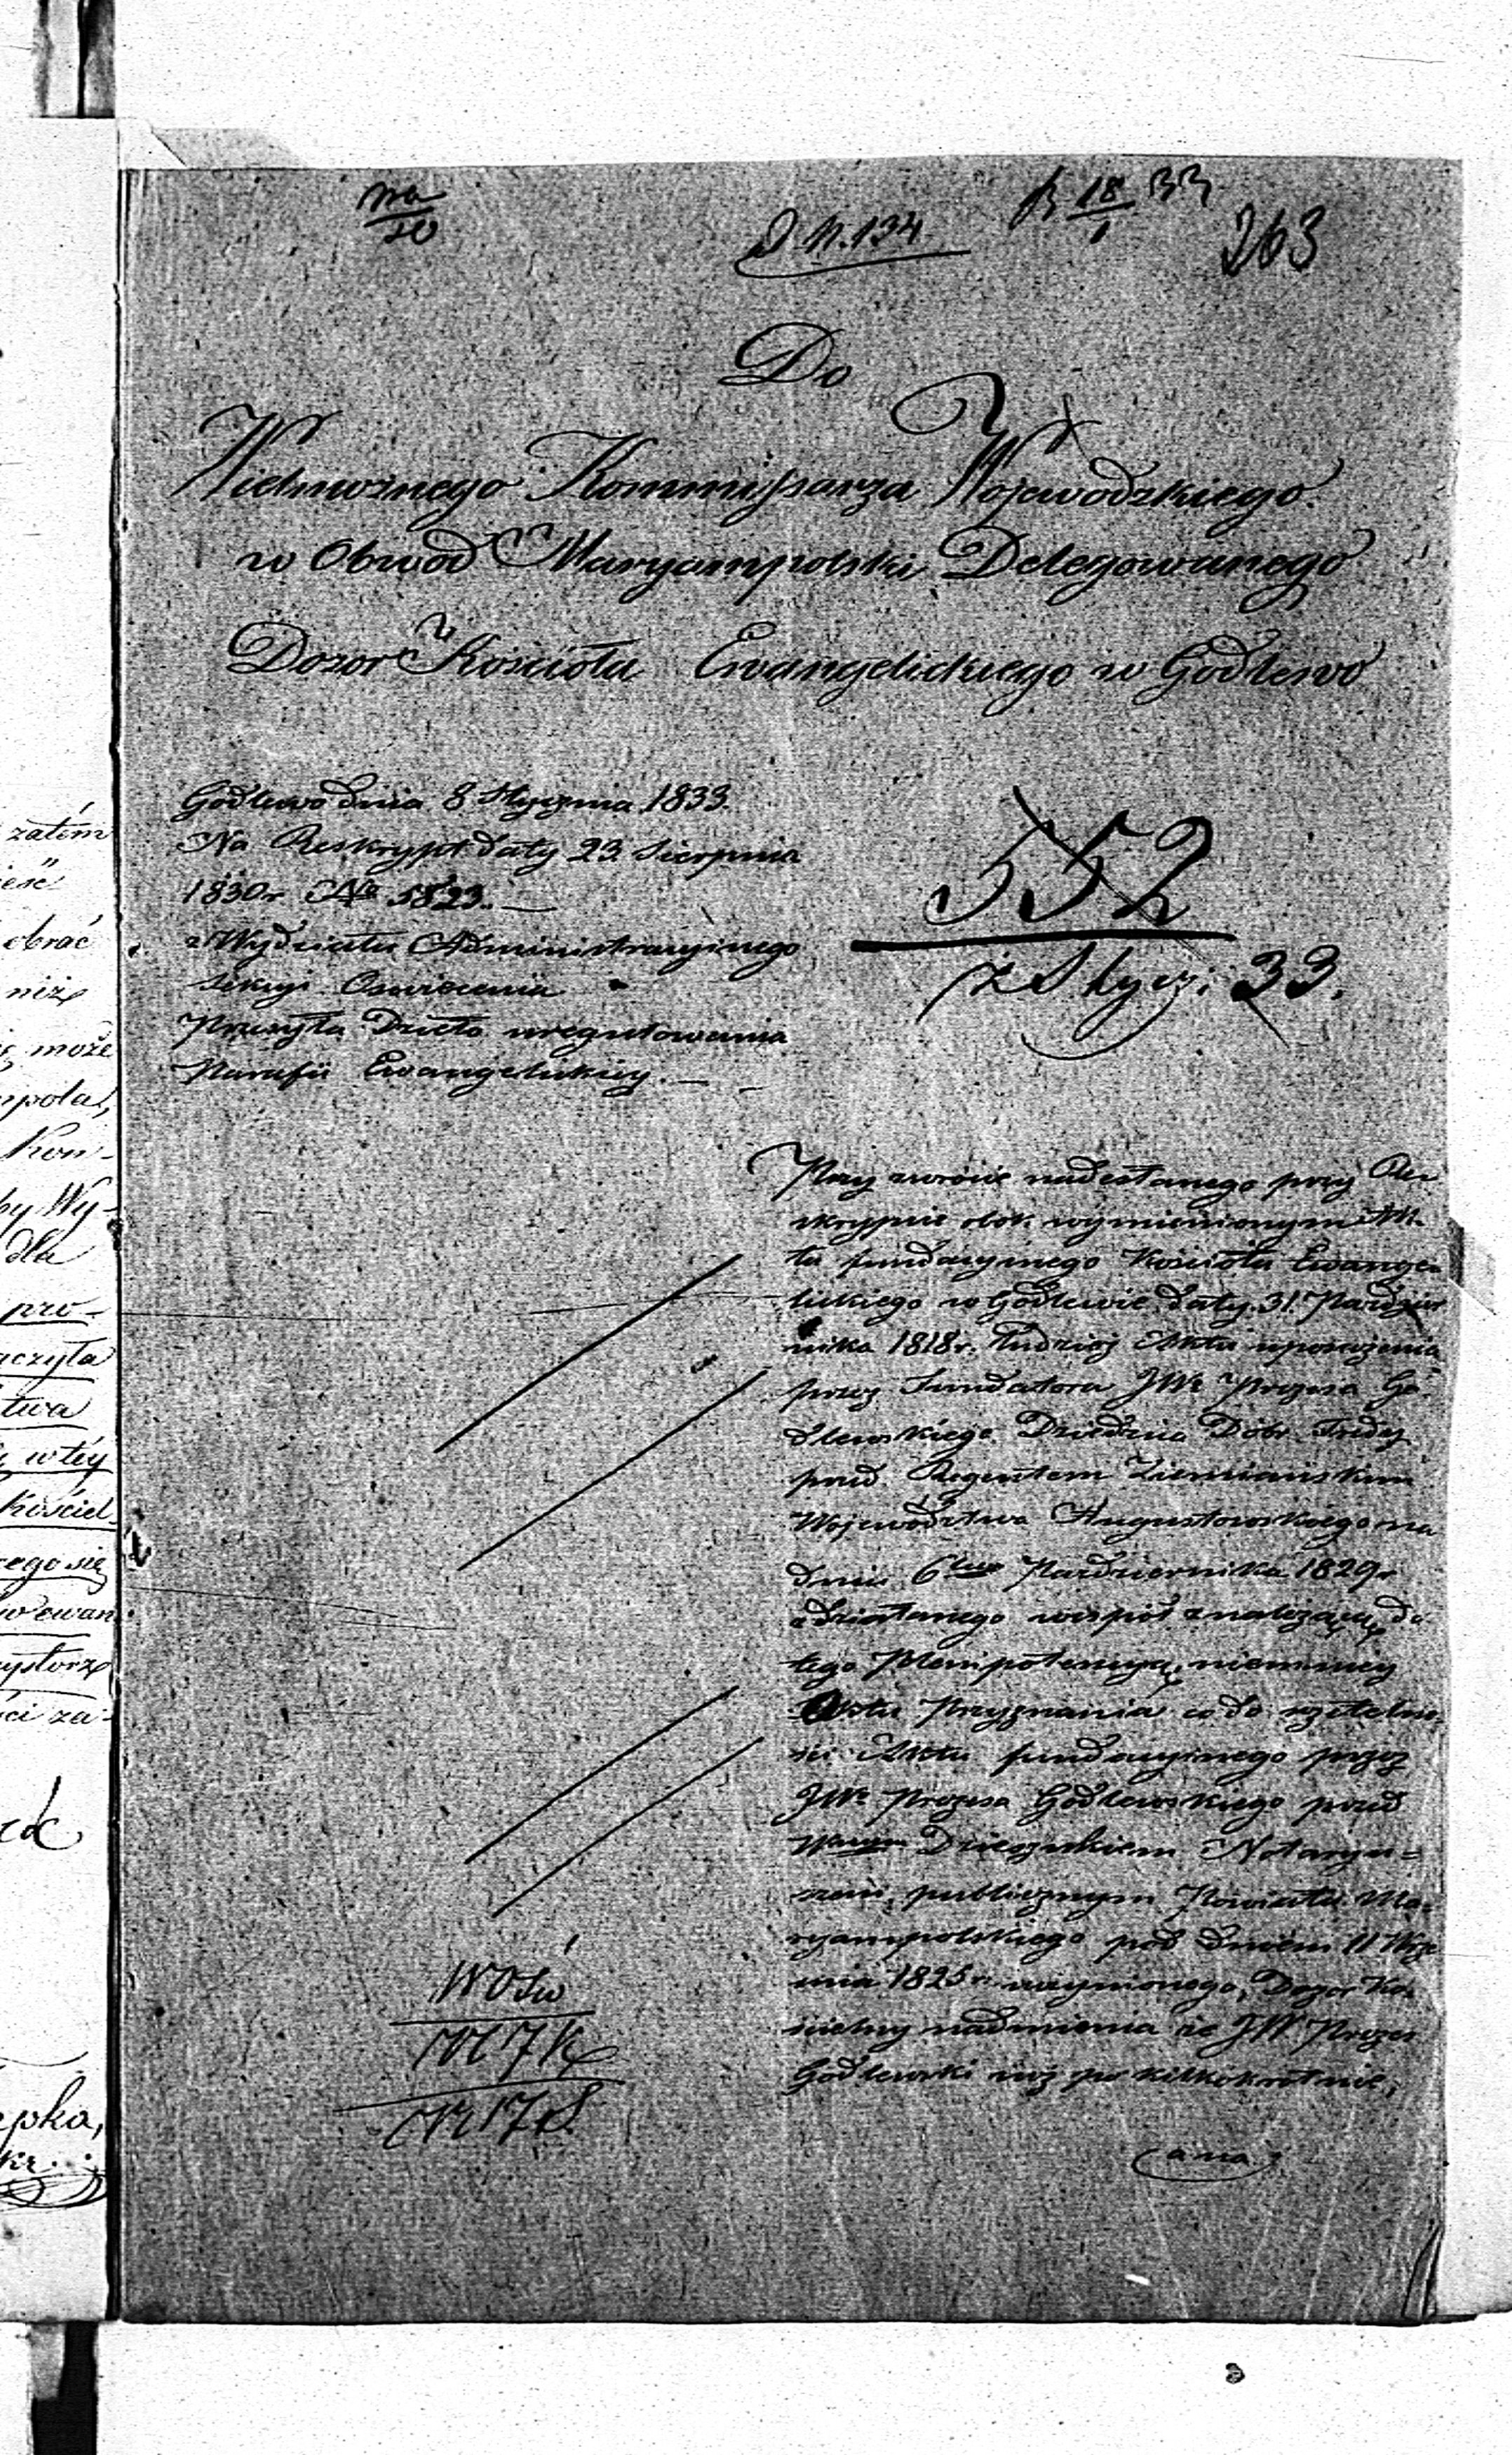 D N. 134
18 33
263
Do
Wielmożnego Kommissarza Wojewodzkiego
w Obwod Maryampolski Delegowanego
Dozor Kościoła Ewangelickiego w Godlewo
Godlewo dnia 8 Stycznia 1833.
Na Reskrypt daty 23 Sierpnia
1830r No 5823.
z Wydziału Administracyinego
Sekcyi Oswiecenia
Przesyła Dzieło uregulowania
Parafii Ewangelickiey.
552
Stycz: 33.
Przy zwrocie nadesłanego przy Re
skrypcie obok wymienionym Ak
tu fundacyinego Kościoła Ewange
lickiego w Godlewie daty 31 Pazdzier
nika 1818r. tudzież Aktu uposażenia
przez Fundatora JWo Prezesa Go
dlewskiego Dziedzica Dóbr Fredy
przed Regentem Ziemiańskim
Wojewodztwa Augustowskiego na
dniu 6 Pazdziernika 1829r
zdziałanego wespół z należącą do
tego Plenipotencyą, niemniey
Aktu Przyznania co do rzetelno
ści Aktu fundacyinego przez
JWo Prezesa Godlewskiego przed
Notaryu=
szem publicznym Powiatu Ma=
ryampolskiego pod dniem 11 Wrze
snia 1825r uczynionego, Dozor Ko
scielny nadmienia że JW Prezes
Godlewski już po kilkokrotnie,
ana
zatém
obrać
niż
może
pola,
Kon-
by Wy-
dla
pro-
aczyła
twa
w téy
Kościel
ego się
ci za-
pka,